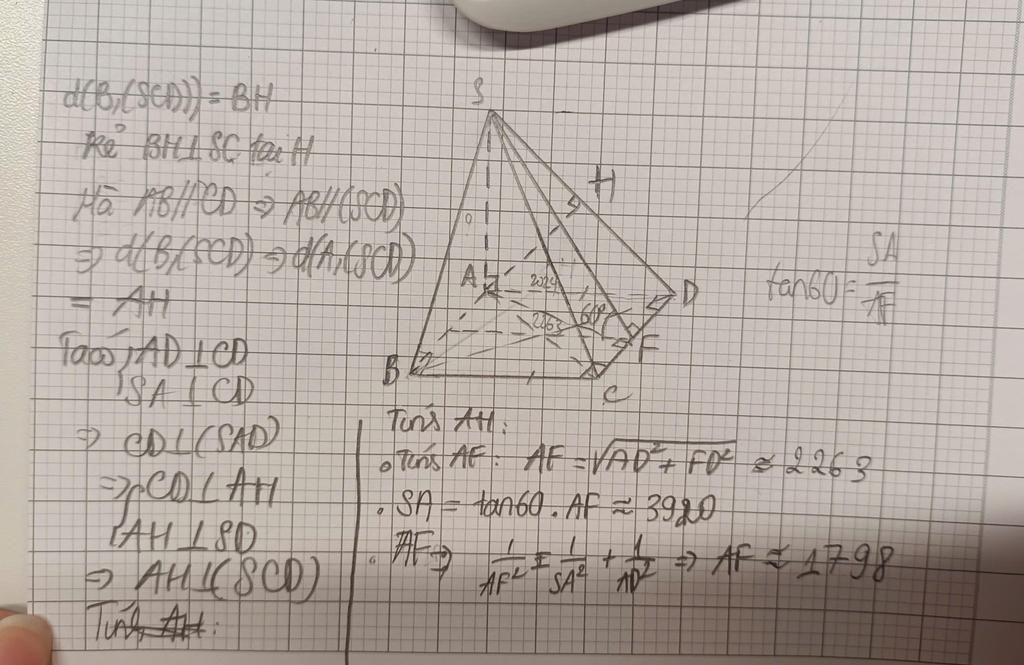 d(B,(SCD)) = BH
Kẻ BH⊥SC tại H
Mà AB//CD ⇒ AB//(SCD)
⇒ d(B,(SCD) ⇒ d(A,(SCD)
= AH
Ta có, AD⊥CD
SA⊥CD
⇒ CD⊥(SAD)
⇒ CD⊥AH
AH⊥SD
⇒ AH⊥(SCD)
Tính AH:
S
H
A
2024
D
60°
2263
F
B
C
tan60 = SA/AF
Tính AH:
Tính AF: AF = √AD²+FD² ≈ 2263
SA = tan60 . AF ≈ 3920
AF ⇒ 1/AF² = 1/SA² + 1/AD² ⇒ AF ≈ 1798